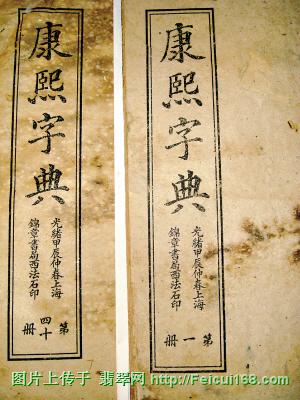 康熙字典
光緒甲辰仲春上海
錦章書局西法石印
第四十冊
康熙字典
光緒甲辰仲春上海
錦章書局西法石印
第一冊
图片上传于 翡翠网 http://Feicui168.com